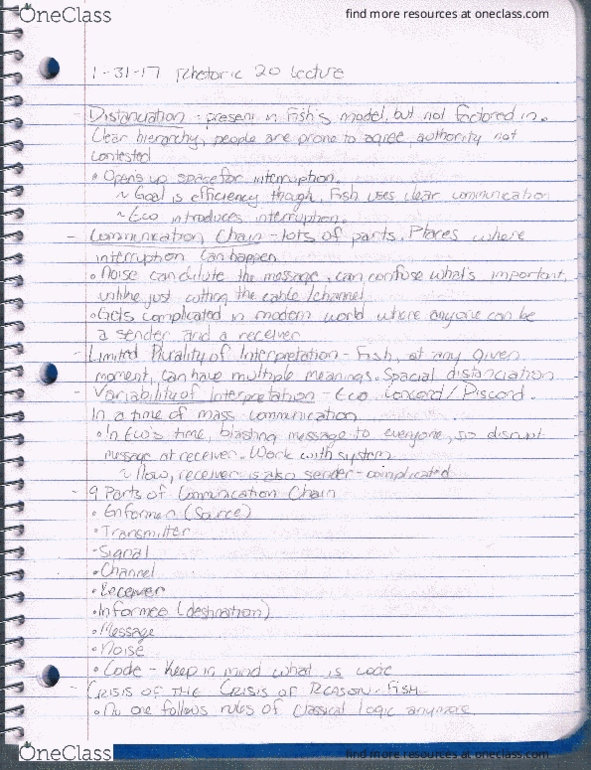 OneClass
find more resources at oneclass.com
1-31-17 Rhetoric 20 Lecture
- Distanciation - present in Fish's model, but not factored in.
Clear hierarchy, people are prone to agree, authority not
contested
• Opens up space for interruption.
~ Goal is efficiency though, Fish uses clear communication
~ Eco introduces interruption.
- Communication Chain - lots of parts. Places where
interruption can happen
• Noise can dilute the message, can confuse what's important,
unlike just cutting the cable/channel
• Gets complicated in modern world where anyone can be
a sender and a receiver
- Limited Plurality of Interpretation - Fish, at any given
moment, can have multiple meanings. Spacial distanciation
- Variability of Interpretation - Eco. Concord/Discord.
In a time of mass communication
• In Eco's time, blasting message to everyone, so disrupt
message at receiver. Work with system.
~ Now, receiver is also sender - complicated
- 9 Parts of Communication Chain
• Informer (Source)
• Transmitter
• Signal
• Channel
• Receiver
• Informee (destination)
• Message
• Noise
• Code - Keep in mind what is code
- Crisis of the Crisis of Reason - Fish
• No one follows rules of classical logic anymore
OneClass
find more resources at oneclass.com